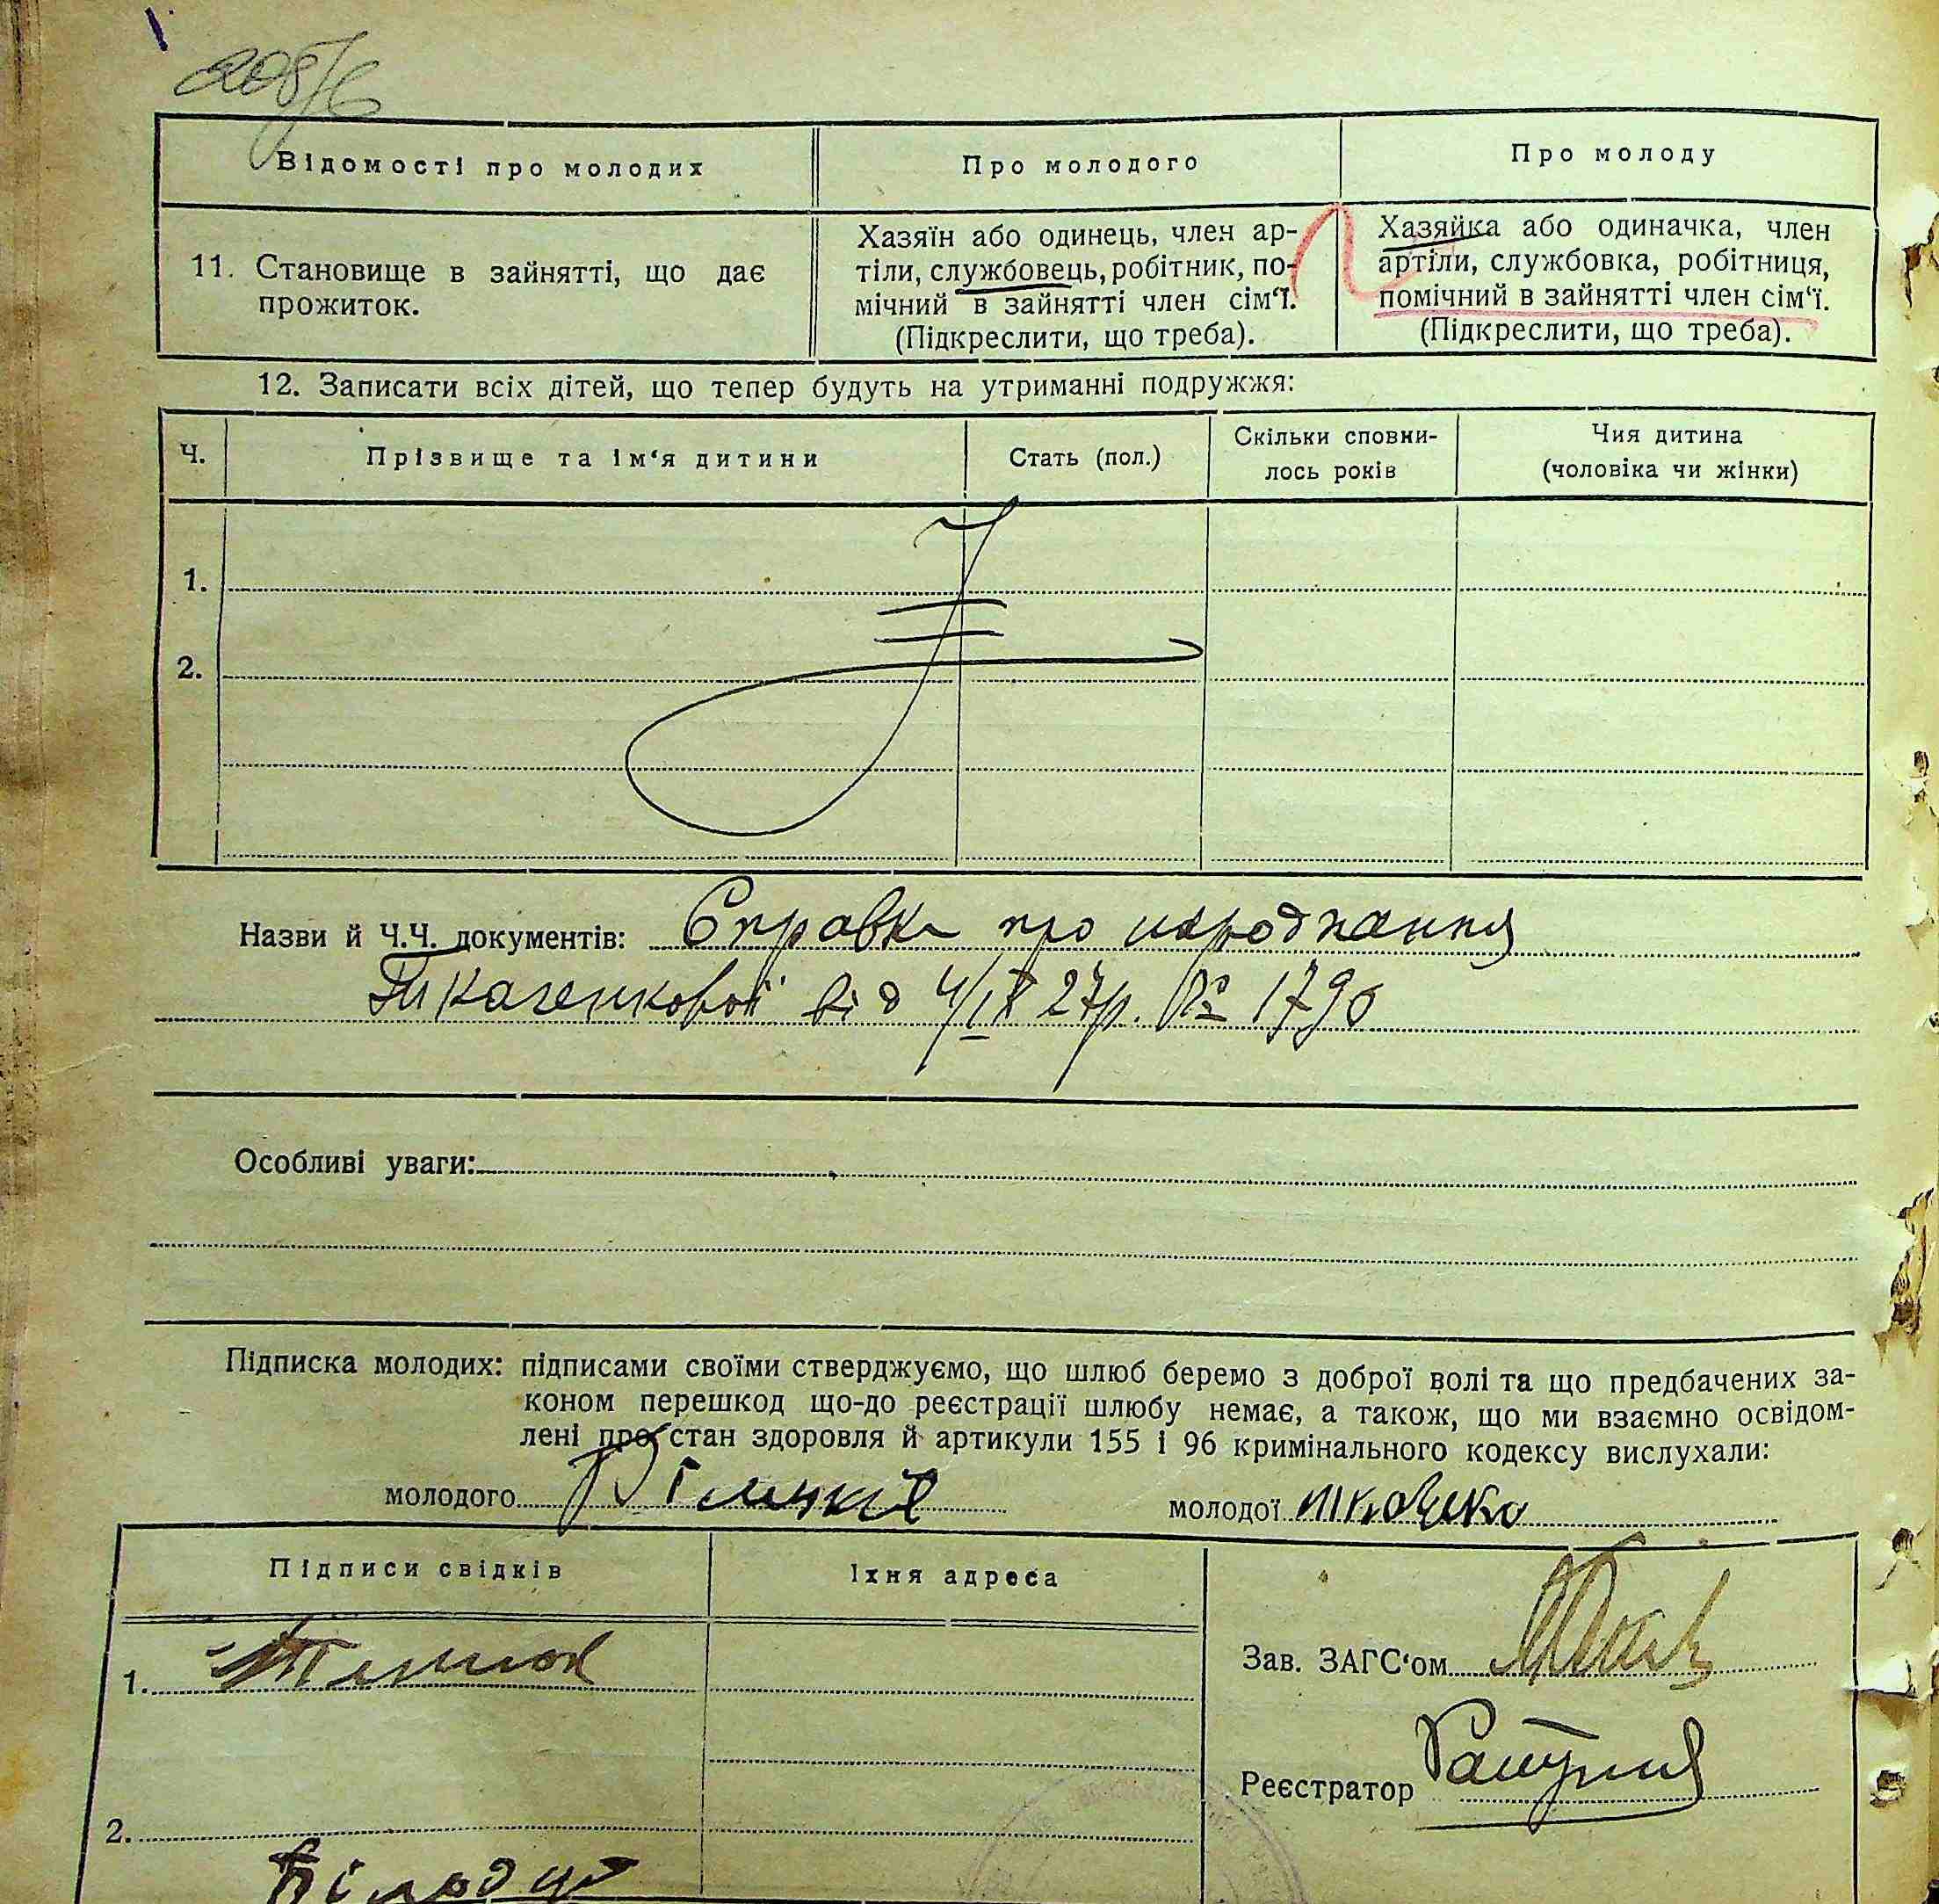 Відомості про молодих
Про молодого
Про молоду
11. Становище в зайнятті, що дає
прожиток.
Хазяїн або одинець, член ар-
тіли, службовець, робітник, по-
мічний в зайнятті член сім‘ї.
(Підкреслити, що треба).
Хазяйка або одиначка, член
артіли, службовка, робітниця,
помічний в зайнятті член сім‘ї.
(Підкреслити, що треба).
12. Записати всіх дітей, що тепер будуть на утриманні подружжя:
Ч.
Прізвище та ім‘я дитини
Стать (пол.)
Скільки сповни-
лось років
Чия дитина
(чоловіка чи жінки)
1.
2.
Назви й Ч.Ч. документів: Справка про народження
від 4/IX 27р. № 1790
Особливі уваги:
Підписка молодих: підписами своїми стверджуємо, що шлюб беремо з доброї волі та що предбачених за-
коном перешкод що-до реєстрації шлюбу немає, а також, що ми взаємно освідом-
лені про стан здоровля й артикули 155 і 96 кримінального кодексу вислухали:
молодого
молодої
Підписи свідків
Їхня адреса
1.
Зав. ЗАГС‘ом
Реєстратор
2.